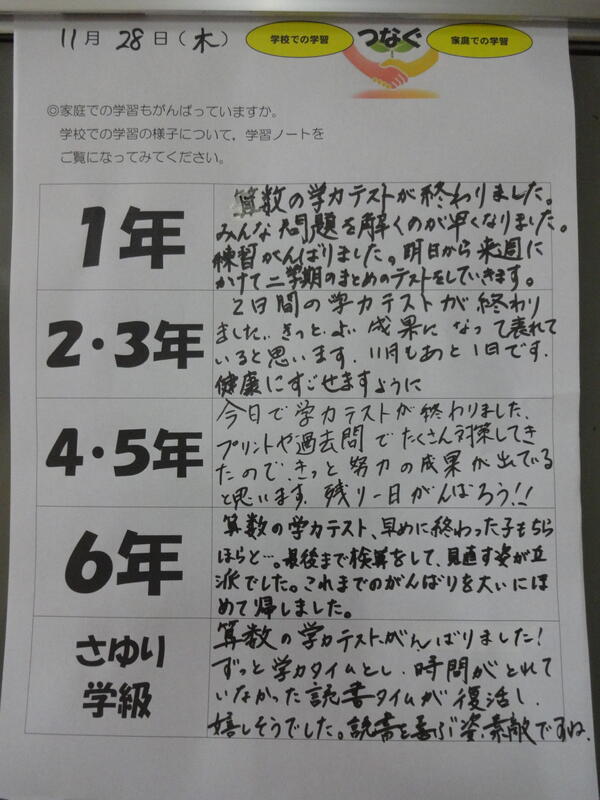 11月28日(木)
学校での学習 つなぐ 家庭での学習
◎家庭での学習もがんばっていますか。
学校での学習の様子について,学習ノートを
ご覧になってみてください。
1年
算数の学力テストが終わりました。
みんな問題を解くのが早くなりました。
練習がんばりました。明日から来週に
かけて二学期のまとめのテストをしていきます。
2・3年
2日間の学力テストが終わり
ました.きっと.よい成果になって表れて
いると思います.11月もあと1日です.
健康にすごせますように
4・5年
今日で学力テストが終わりました.
プリントや過去問でたくさん対策してき
たので、きっと努力の成果が出ている
と思います.残り一日がんばろう!!
6年
算数の学力テスト、早めに終わった子もちら
ほらと…。最後まで検算をして、見直す姿が立
派でした。これまでのがんばりを大いにほ
めて帰しました。
さゆり
学級
算数の学力テスト、がんばりました!
ずっと学力タイムとし、時間がとれて
いなかった読書タイムが復活し、
嬉しそうでした。読書を喜ぶ姿、素敵ですね。